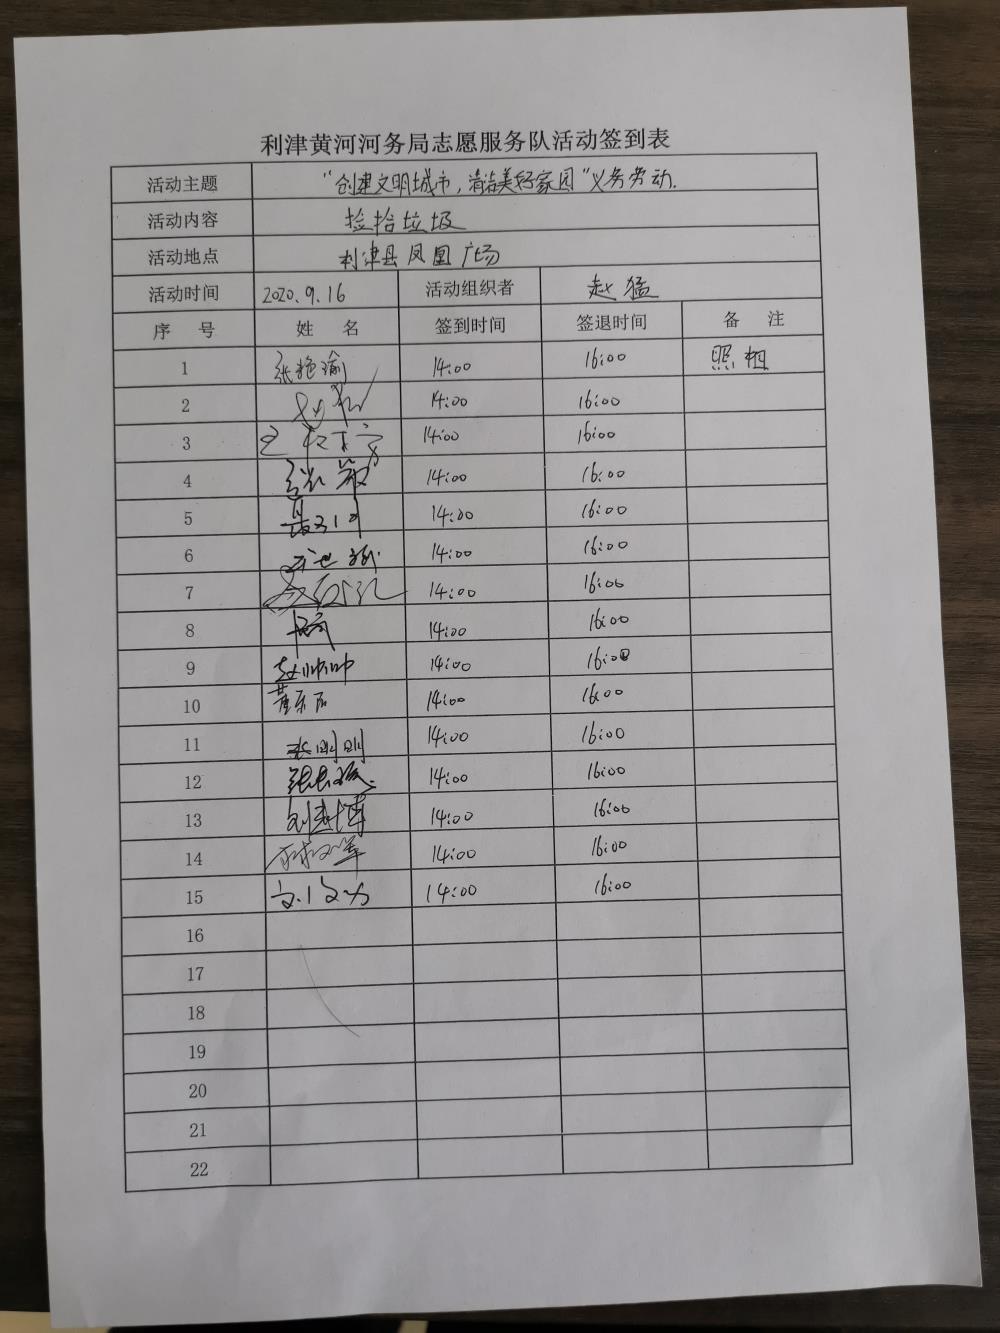 利津黄河河务局志愿服务队活动签到表
活动主题 "创建文明城市，清洁美好家园"义务劳动.
活动内容 捡拾垃圾
活动地点 利津县凤凰广场
活动时间 2020.9.16 活动组织者 赵猛
序 号 姓 名 签到时间 签退时间 备 注
1 张艳瑜 14:00 16:00 照相
2 14:00 16:00
3 14:00 16:00
4 14:00 16:00
5 14:00 16:00
6 14:00 16:00
7 14:00 16:00
8 14:00 16:00
9 赵帅帅 14:00 16:00
10 14:00 16:00
11 14:00 16:00
12 14:00 16:00
13 14:00 16:00
14 14:00 16:00
15 14:00 16:00
16
17
18
19
20
21
22